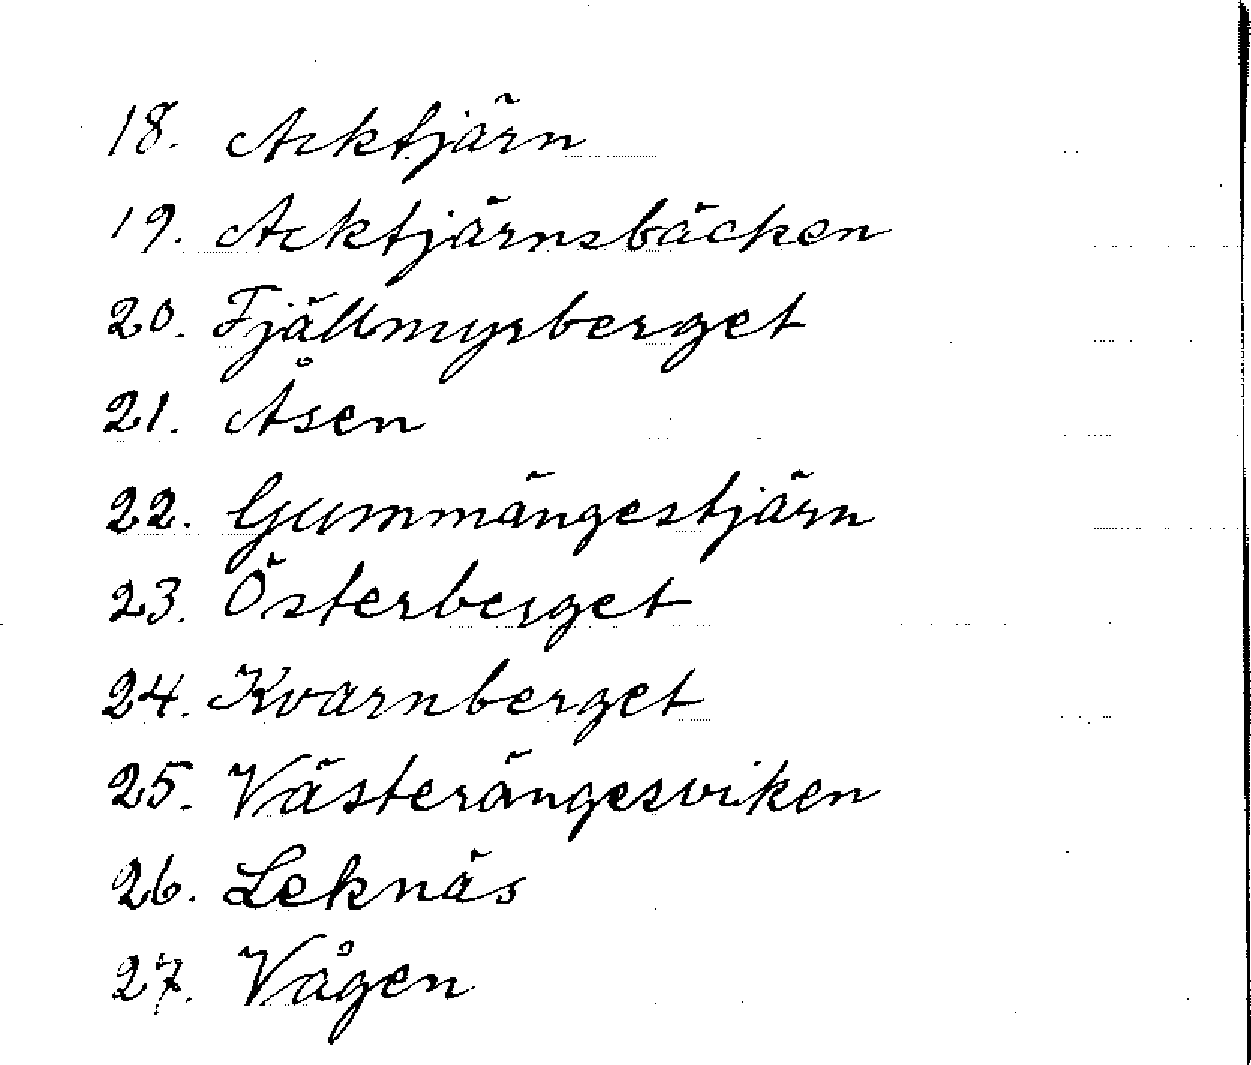 18. Acktjärn
19. Acktjärnsbäcken
20. Fjällmyrberget
21. Åsen
22. Gummängestjärn
23. Österberget
24. Kvarnberget
25. Västerängesviken
26. Leknäs
27. Vågen